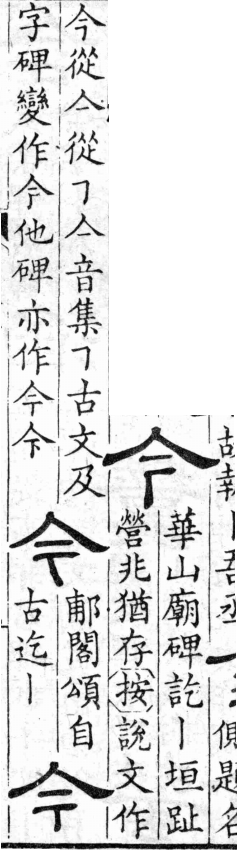 報丨吾
題名
今
華山廟碑訖丨垣趾
營兆猶存按說文作
今從亼從㇕亼音集㇕古文及
字碑變作今他碑亦作今
今
郙閣頌自
古迄丨
今